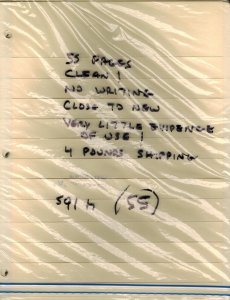 55 PAGES
CLEAN!
NO WRITING
CLOSE TO NEW
VERY LITTLE EVIDENCE
OF USE!
4 POUNDS SHIPPING
591 h (55)